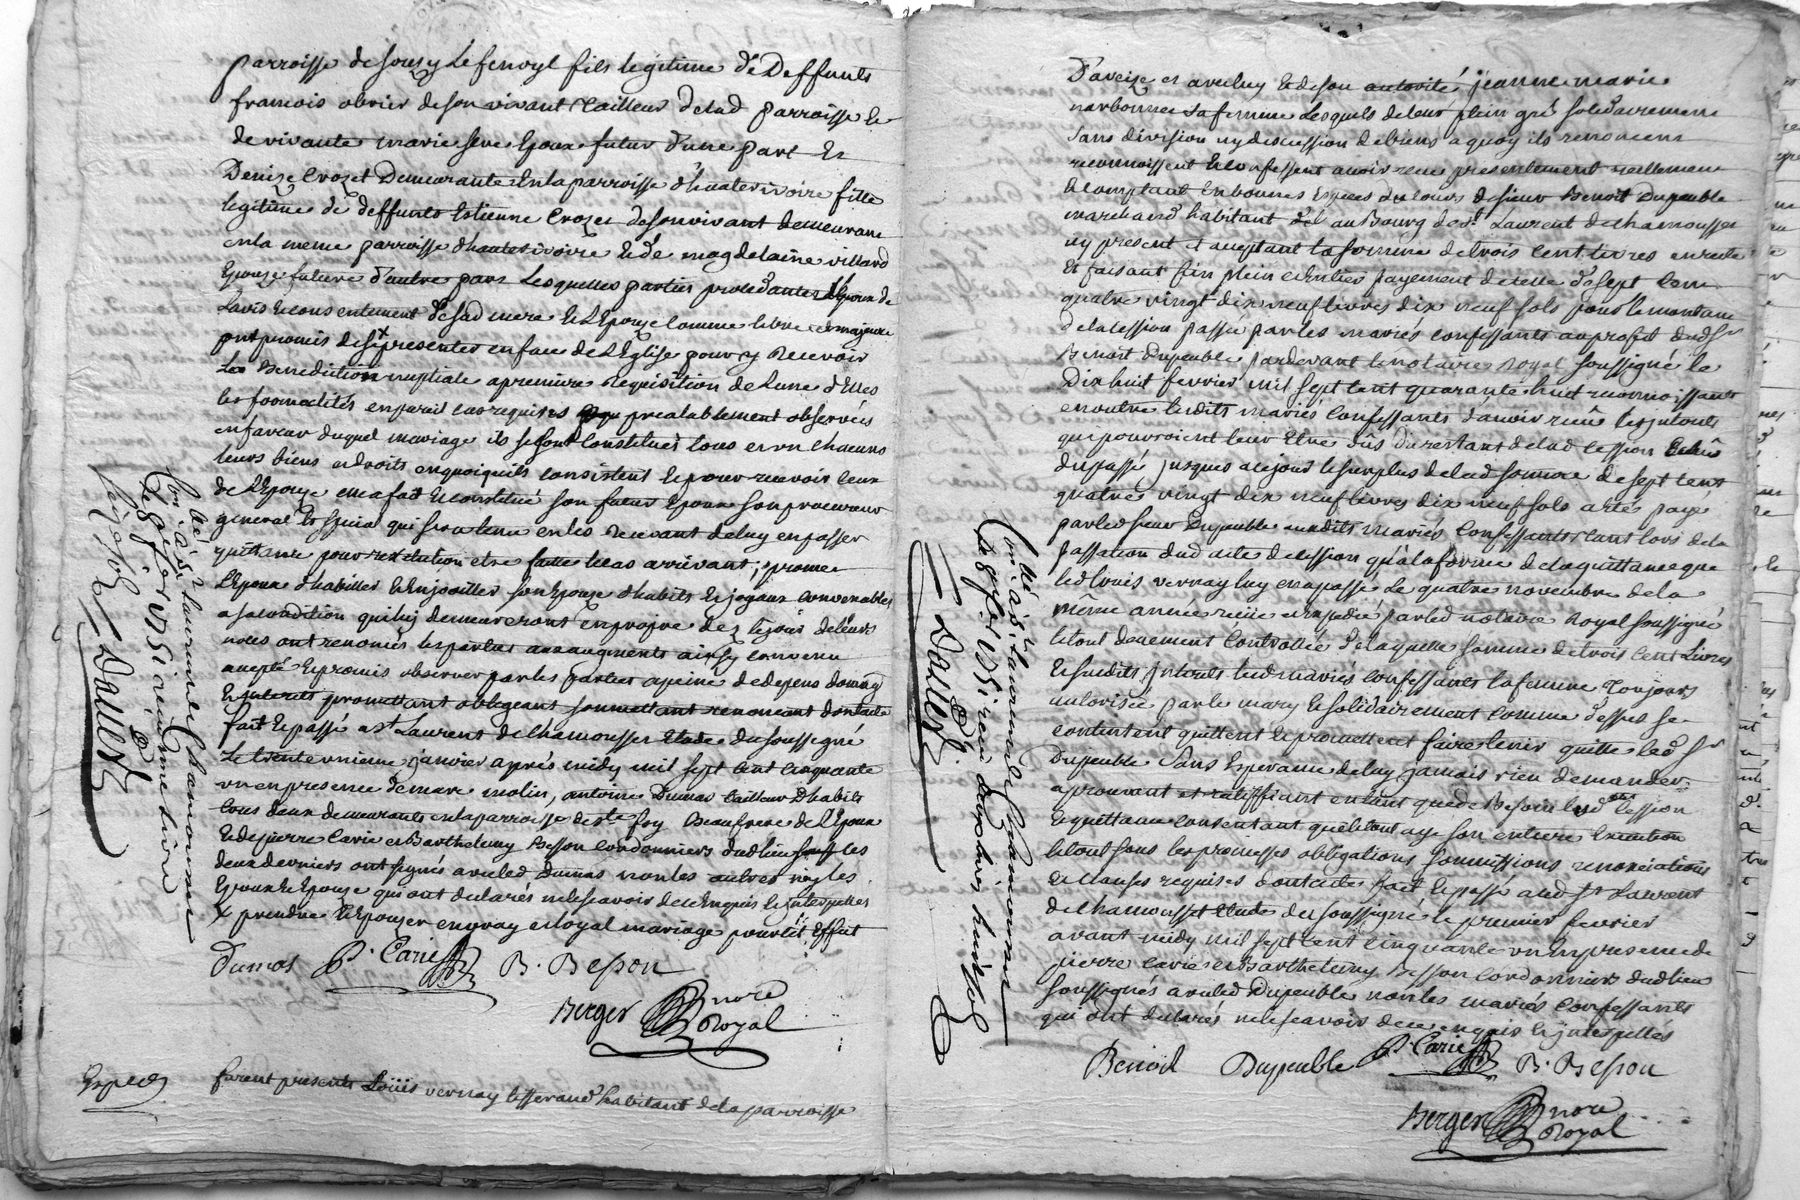 parroisse de sousy Lefenoyl fils legitime de Deffunts
francois obrier de son vivant tailleur de lad parroisse et
de vivante marie seve Epoux futur d'une part Et
Denize Crozet Demeurante En la parroisse d'hauterivoire fille
legitime de deffunts Estienne Crozet de son vivant demeurant
en la meme parroisse d'hauterivoire et de magdelaine villard
Epouze future d'autre part Lesquelles parties procedantes L'Epoux de
L'avis et consentement de sad mere et L'Epouze comme libre et majeure
ont promis de se x presenter en face de L'Eglise pour y Recevoir
La Benediction nuptiale a premiere Requisition de L'une d'Elles
les formalités en pareil cas requises prealablement observées
en faveur duquel mariage ils se sont Constitués tous et un chacuns
leurs biens et droits en quoiqu'ils consistent et pour recevoir ceux
de L'Epouze Elle a fait et constitué son futur Epoux son procureur
general et special qui sera tenu en les recevant de luy en passer
quittance pour restitution etre faitte le cas arrivant; promet
L'Epoux d'habiller et Enjoailler son Epouze d'habits et joyaux convenables
a sa condition qui luy demeureront En propre dez le jour de leurs
noces ont renoncés les parties arraugments ainsy convenu
accepté et promis observer par les parties a peine de depens domag
Et interets promettant obligeant soumettant renoncant dont acte
fait et passé a st Laurent de Chamousset Etude du soussigné
Le trente unieme janvier après midy mil sept cent cinquante
un en presence de marc molin, antoine Dumas tailleur D'habits
tous deux demeurants en la parroisse de ste foy Beaufrere de L'Epoux
et de pierre Carie et Barthelemy Besson cordonniers dud lieu les
deux derniers ont signés avec led Dumas non les autres ny les
Epoux et Epouze qui ont declarés ne le scavoir de ce Enquis et interpellés
x prendre et Epouzer en vray et loyal mariage pour cet Effet
Dumas P. Carie B. Besson
Berger nore
Royal
Con.lé à St Laurent de Chamousset
le 9 fer 1751 reçu
Dalles
Exped
furent presents Loüis vernay tisserand habitant de la parroisse
D'aveize et avec luy et de son autorité jeanne marie
narbonne sa femme Lesquels de leur plein gré solidairement
sans division ny discussion de biens a quoy ils renoncent
reconnoissent et confessent avoir recu presentement reellement
et comptant En bonnes Especes du cours de sieur Benoit Dupeuble
marchand habitant au Bourg de st Laurent de chamousset
icy present et acceptant la somme de trois cent livres en reste
Et faisant fin plein et Entier payement de celle de sept cent
quatre vingt dix neuf livres dix neuf sols pour le montant
de la cession passée par les mariés confessants au profit dud sr
Benoit Dupeuble pardevant le notaire Royal soussigné le
Dix huit fevrier mil sept cent quarante huit reconnoissants
en outre lesdits mariés confessants d'avoir recûs les interets
qui pouvoient leur etre dûs du restant de lad cession
du passé jusques a ce jour le surplus de lad somme de sept cent
quatre vingt dix neuf livres dix neuf sols a été payé
par led sieur Dupeuble auxdits mariés Confessants tant lors de la
passation dud acte de cession qu'a la forme de la quittance que
led Louis vernay luy en a passé Le quatre novembre de la
même année recüe et expediée par led notaire Royal soussigné
le tout deuement Controllée de laquelle somme de trois cent Livres
et susdits interets lesd mariés confessants la femme toujours
autorisée par le mary et solidairement comme dessus se
contentent quittent et promettent faire tenir quitte led sr
Dupeuble sans Esperance de luy jamais rien demander
aprouvant et ratiffiant en tant que de Besoin lesd cession
et quittance consentant qu'elle tout aye son entiere Execution
le tout sous les promesses obligations soummissions renonciations
et clauses requises dont acte fait et passé aud st Laurent
de chamousset Etude du soussigné le premier fevrier
avant midy mil sept cent cinquante un en presence de
pierre Carie et Barthelemy Besson cordonniers dud lieu
soussignés avec led Dupeuble non les mariés confessants
qui ont declarés ne le scavoir de ce enquis et interpellés
Benoit Dupeuble P. Carie B. Besson
Berger nore
Royal
Con.lé à St Laurent de Chamousset
le 9 fer 1751 reçu
Dalles